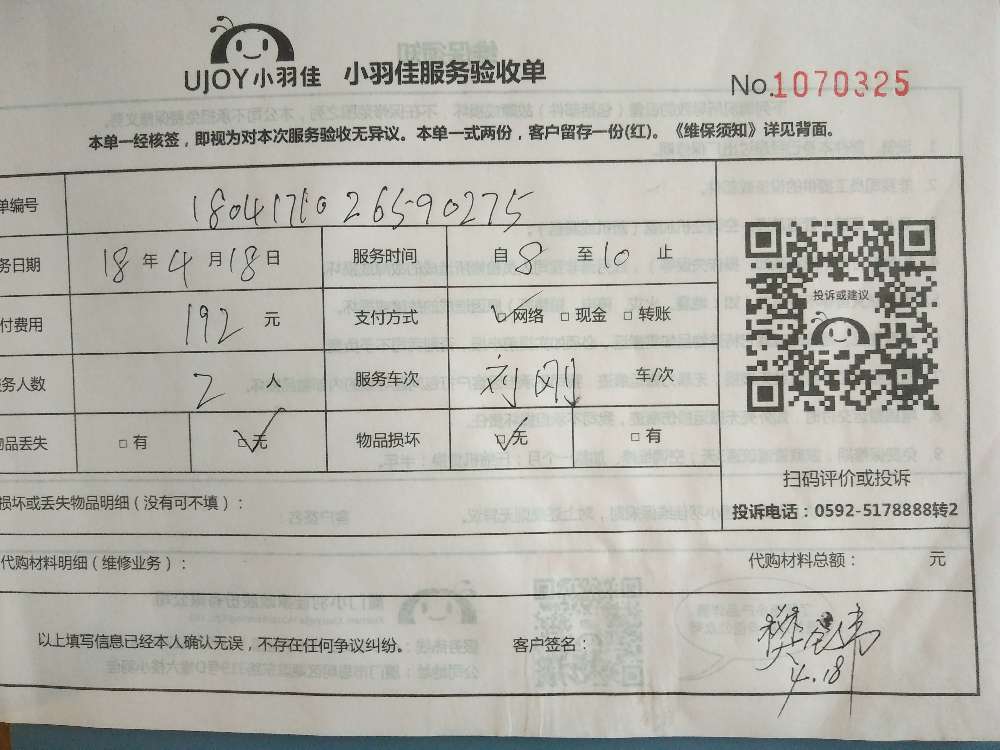 UJOY小羽佳 小羽佳服务验收单
No.1070325
本单一经核签，即视为对本次服务验收无异议。本单一式两份，客户留存一份(红)。《维保须知》详见背面。
单编号 18041710 26590275
务日期 18 年 4 月 18 日 服务时间 自 8 至 10 止
付费用 192 元 支付方式 网络 现金 转账
务人数 2 人 服务车次 车/次
物品丢失 有 无 物品损坏 无 有
投诉或建议
扫码评价或投诉
投诉电话：0592-5178888转2
损坏或丢失物品明细（没有可不填）：
代购材料明细（维修业务）： 代购材料总额： 元
以上填写信息已经本人确认无误，不存在任何争议纠纷。 客户签名：
4.18